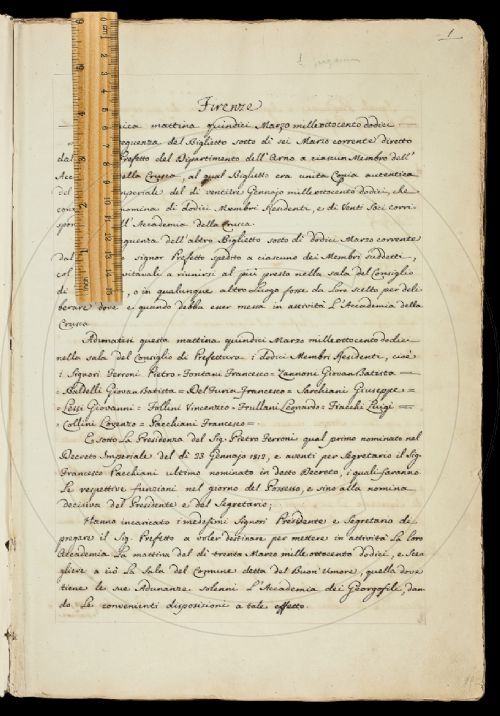 1
Firenze
nica mattina quindici Marzo mille ottocento dodici
eguenza del Biglietto sotto dì sei Marzo corrente diretto
dal Prefetto del Dipartimento dell'Arno a ciascun Membro dell'
Acc ella Crusca, al qual Biglietto era unita Copia autentica
del mperiale del dì ventitre Gennajo mille ottocento dodici, che
nomina di dodici Membri Residenti, e di Venti Soci corri-
spon ll'Accademia della Crusca.
guenza dell'altro Biglietto sotto dì dodici Marzo corrente
dal signor Prefetto spedito a ciascuno dei Membri suddetti,
col invitavali a riunirsi al più presto nella sala del Consiglio
di , o in qualunque altro luogo fosse da loro scelto per deli-
berare dove e quando debba esser messa in attività L'Accademia della
Crusca
Adunatisi questa mattina quindici Marzo mille ottocento dodici
nella sala del Consiglio di Prefettura i dodici Membri Residenti, cioè
i Signori Ferroni Pietro = Fontani Francesco = Zannoni Giovan Batista =
= Baldelli Giovan Batista = Del Furia Francesco = Sarchiani Giuseppe =
= Lessi Giovanni = Follini Vincenzio = Frullani Leonardo = Fiacchi Luigi =
= Collini Lorenzo = Pacchiani Francesco =
E sotto La Presidenza del Sig. Pietro Ferroni qual primo nominato nel
Decreto Imperiale del dì 23 Gennajo 1812, e aventi per Segretario il Sig.
Francesco Pacchiani ultimo nominato in detto Decreto, i quali faranno
Le respettive funzioni nel giorno del Possesso, e sino alla nomina
decisiva del Presidente e del Segretario;
Hanno incaricato i medesimi Signori Presidente e Segretario di
pregare il Sig. Prefetto a voler destinare per mettere in attività La loro
Accademia La mattina del dì trenta Marzo mille ottocento dodici, e Sce-
gliere a ciò La Sala del Comune detta del Buon'Umore, quella dove
tiene le sue Adunanze solenni L'Accademia dei Georgofili, dan-
do Le convenienti disposizioni a tale effetto.